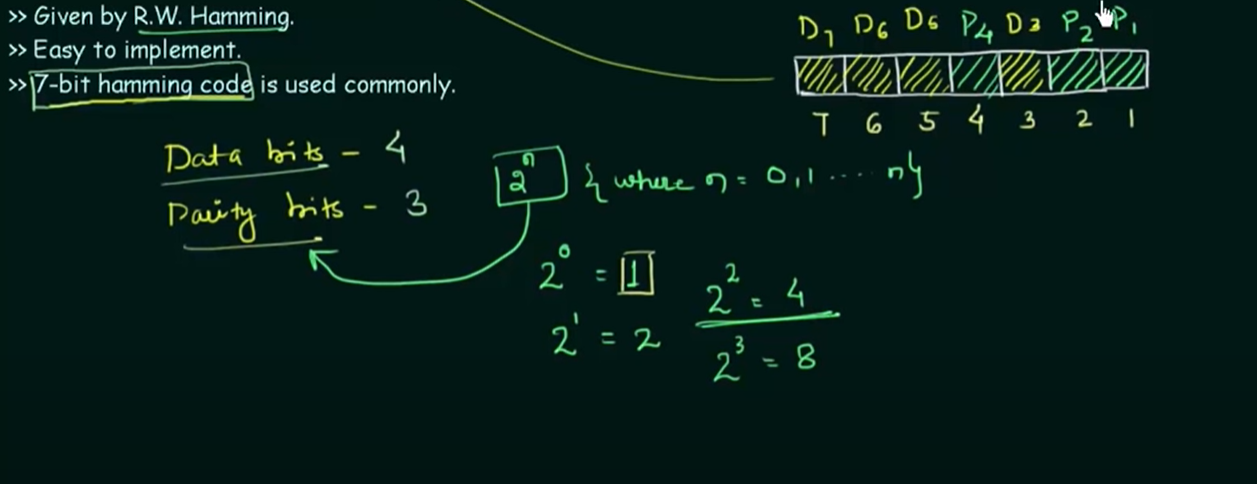 >> Given by R.W. Hamming.
>> Easy to implement.
>> 7-bit hamming code is used commonly.
D7 D6 D5 P4 D3 P2 P1
7 6 5 4 3 2 1
Data bits - 4
Parity bits - 3
2^n { where n = 0, 1 .... n}
2^0 = 1
2^1 = 2
2^2 = 4
2^3 = 8